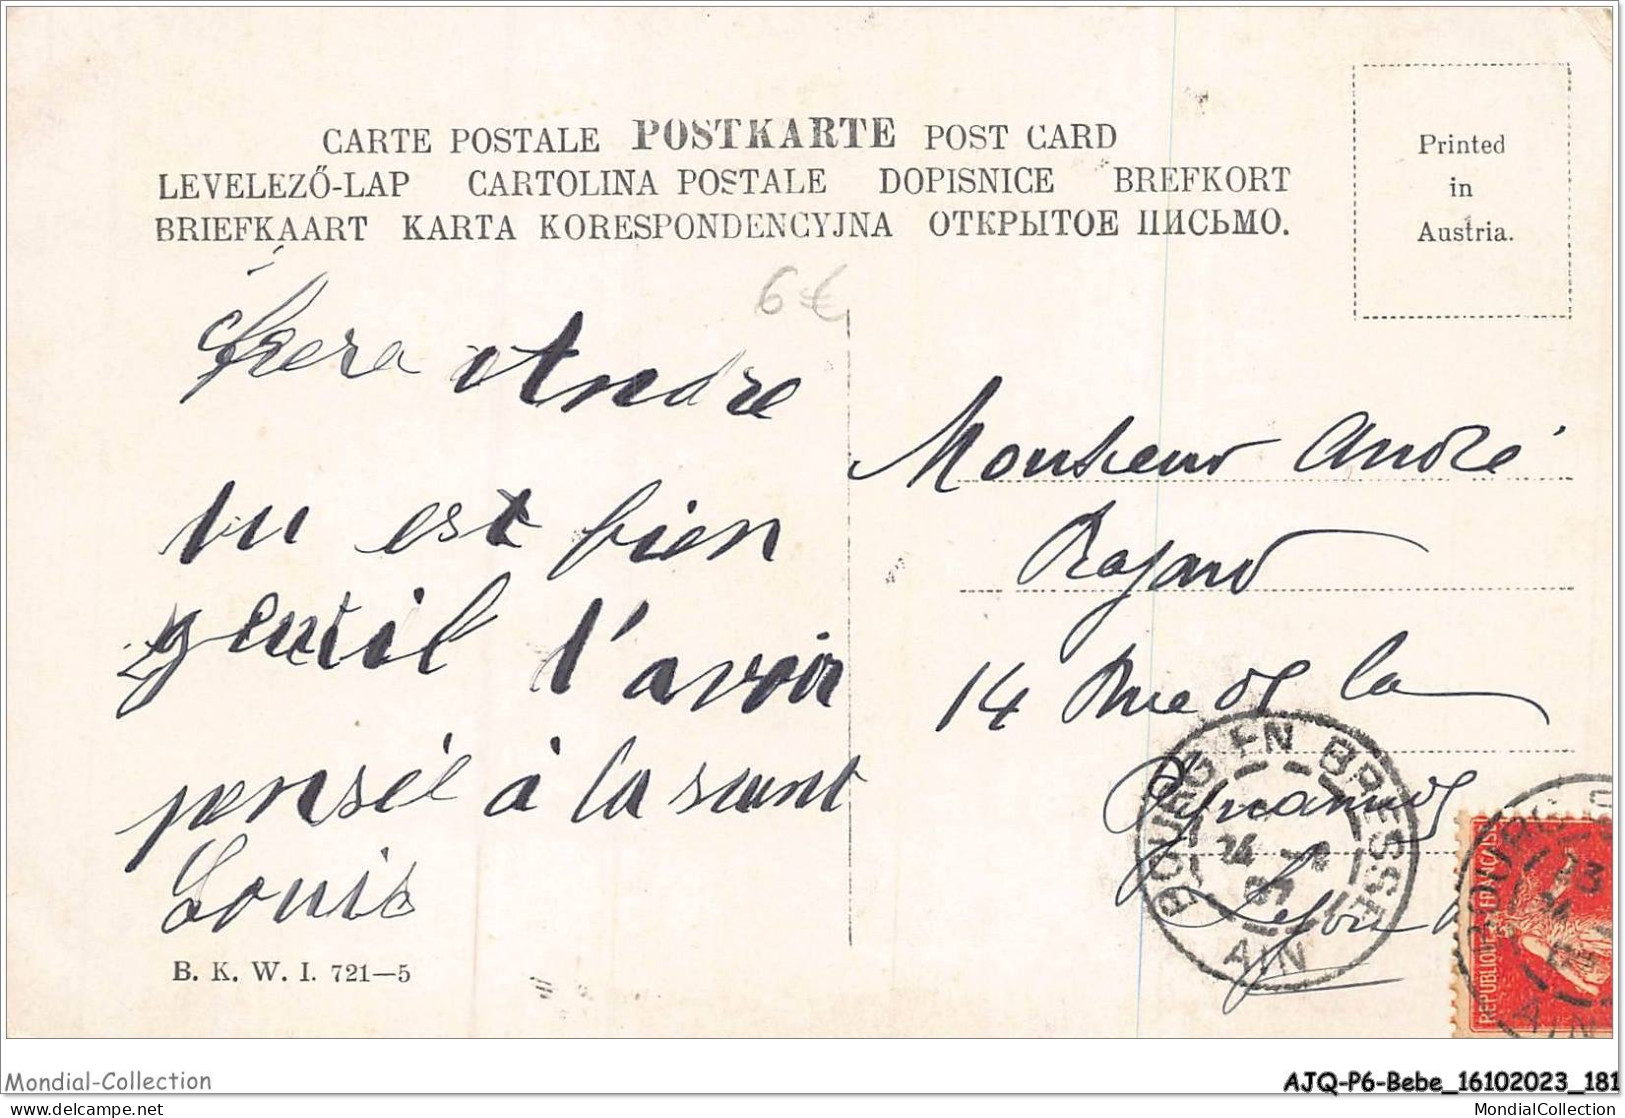 CARTE POSTALE POSTKARTE POST CARD
LEVELEZŐ-LAP CARTOLINA POSTALE DOPISNICE BREFKORT
BRIEFKAART KARTA KORESPONDENCYJNA ОТКРЫТОЕ ПИСЬМО.
Printed
in
Austria.
6€
Andre
tu est bien
gentil d'avoir
pensée à la sant
Louis
B. K. W. I. 721—5
Monsieur André
14 Rue de la
Lyon
BOURG EN BRESSE
AIN
REPUBLIQUE FRANÇAISE
AIN
Mondial-Collection
AJQ-P6-Bebe_16102023_181
delcampe.net
MondialCollection